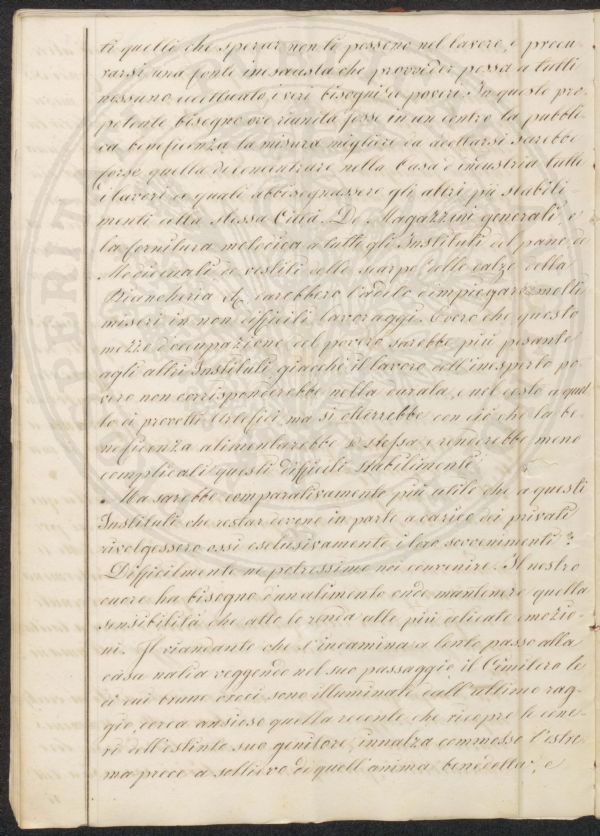 ti quelli che sperar non lo possono nel lavoro, e procu
rarsi una fonte inesausta che provvider possa a tutti
nessuno eccettuato, i veri bisogni de poveri. In questo pre
potente bisogno ove riunita fosse in un centro la pubbli
ca beneficenza la misura migliore da adottarsi sarebbe
forse quella di concentrare nella Casa d'industria tutti
i lavori a quali abbisognassero gli altri pii stabili
menti della stessa Città. De' Magazzini generali e
la fornitura metodica a tutti gli Instituti del pane de
Medicinali de vestiti delle scarpe delle calze della
Biancheria &c. darebbero l'adito d'impiegare molti
miseri in non difficili lavoraggi. È vero che questo
mezzo d'occupazione del povero sarebbe più pesante
agli altri Instituti giacchè il lavoro dell'inesperto po
vero non corrisponderebbe nella durata, e nel costo a quel
lo di provetti Artefici ma si otterrebbe con ciò che la be
neficenza alimentarebbe se stessa e renderebbe meno
complicati questi difficili stabilimenti.
Ma sarebbe comparativamente più utile che a questi
Instituti che restar devono in parte a carico dei privati
rivolgessero essi esclusivamente i loro sovvenimenti?
Difficilmente ne potressimo noi convenire. Il nostro
cuore ha bisogno d'un alimento onde mantenere quella
sensibilità che atto lo renda alle più delicate emozio-
ni. Il viandante che s'incamina a lento passo alla
casa natia veggendo nel suo passaggio il Cimitero le
di cui brune croci sono illuminate dall'ultimo rag-
gio, cerca ansioso quella recente che ricopre le cene
ri dell'estinto suo genitore, innalza commosso l'estre
ma prece a sollievo di quell'anima benedetta, e